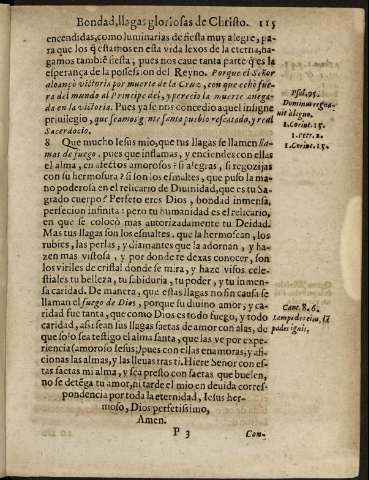 Bondad, llagas gloriosas de Christo. 115
encendidas, como luminarias de fiesta muy alegre, pa-
ra que los q̃ estamos en esta vida lexos de la eterna, ha-
gamos tambiẽ fiesta; pues nos cave tanta parte q̃ es la
esperança de la possession del Reyno. Porque el Señor
alcanço victoria por muerte de la Cruz, con que echò fue-
ra del mundo al Principe del, y perecio la muerte anega-
da en la victoria. Pues ya se nos concediò aquel insigne
privilegio, que seamos gẽte santa pueblo rescatado, y real
Sacerdocio.
8 Que mucho Iesus mio, que tus llagas se llamen lla-
mas de fuego, pues que inflamas, y enciendes con ellas
el alma, en afectos amorosos? si alegras, si regozijas
con su hermosura? si son los esmaltes, que puso la ma-
no poderosa en el relicario de Diuinidad, que es tu Sa-
grado cuerpo? Perfeto eres Dios, bondad inmensa,
perfecion infinita: pero tu humanidad es el relicario,
en que se colocò mas autorizadamente tu Deidad.
Mas tus llagas son los esmaltes, que la hermosean, los
rubies, las perlas, y diamantes que la adornan, y ha-
zen mas vistosa, y por donde te dexas conocer, son
los viriles de cristal donde se mira, y haze visos cele-
stiales tu belleza, tu sabiduria, tu poder, y tu inmen-
sa caridad. De manera, que estas llagas no sin causa se
llaman el fuego de Dios, porque su diuino amor, y ca-
ridad fue tanta, que como Dios es todo fuego, y todo
caridad, assi sean sus llagas saetas de amor con alas, de
que solo sea testigo el alma santa, que las ve por expe-
riencia (amoroso Iesus;) pues con ellas enamoras, y afi-
cionas las almas, y las lleuas tras ti. Hiere Señor con es-
tas saetas mi alma, y sea presto con saetas que buelen,
no se detẽga tu amor, ni tarde el mio en deuida corres-
pondencia por toda la eternidad, Iesus her-
moso, Dios perfetissimo,
Amen.
P 3 Con-
Psal. 95.
Dominus regna-
uit à ligno.
1. Corint. 15.
1. Petr. 2.
1. Corint. 15.
Cant. 8. 6.
Lampades eius, lã
pades ignis,